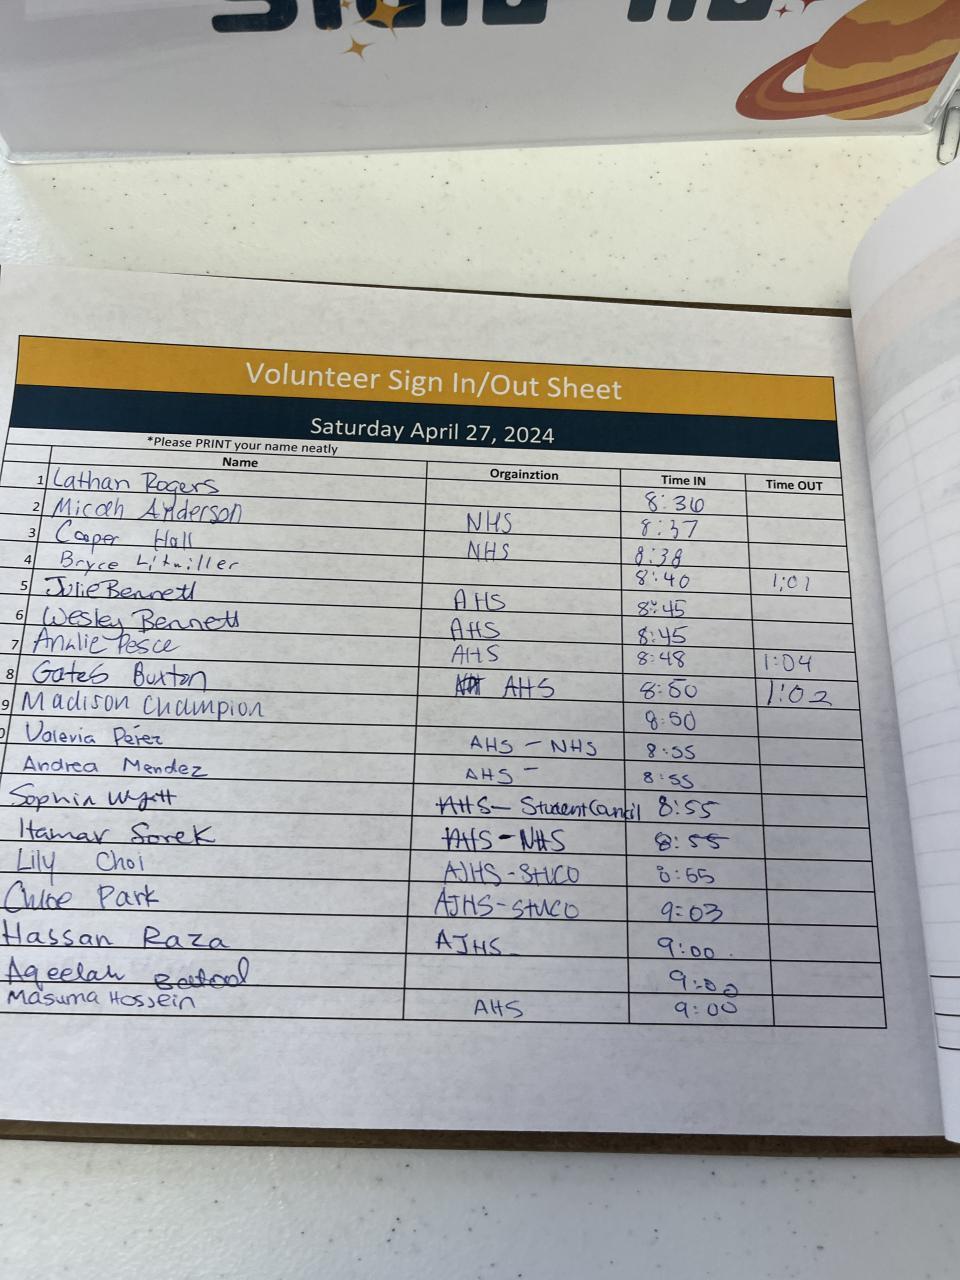 Volunteer Sign In/Out Sheet
Saturday April 27, 2024
*Please PRINT your name neatly
Name Orgainztion Time IN Time OUT
1 Lathan Rogers 8:36
2 Micah Anderson NHS 8:37
3 Cooper Hall NHS 8:38
4 Bryce Litwiller 8:40 1:01
5 Julie Bennett AHS 8:45
6 Wesley Bennett AHS 8:45
7 Analie Pesce AHS 8:48 1:04
8 Gates Buxton AHS 8:50 1:02
9 Madison Champion 8:50
0 Valeria Pérez AHS - NHS 8:55
Andrea Mendez AHS - 8:55
Sophia Wyatt AHS - Student Council 8:55
Itamar Sorek AHS - NHS 8:55
Lily Choi AJHS - StUCO 8:55
Chloe Park AJHS - StUCO 9:03
Hassan Raza AJHS 9:00
Aqeelah Batool 9:00
Masuma Hossein AHS 9:00